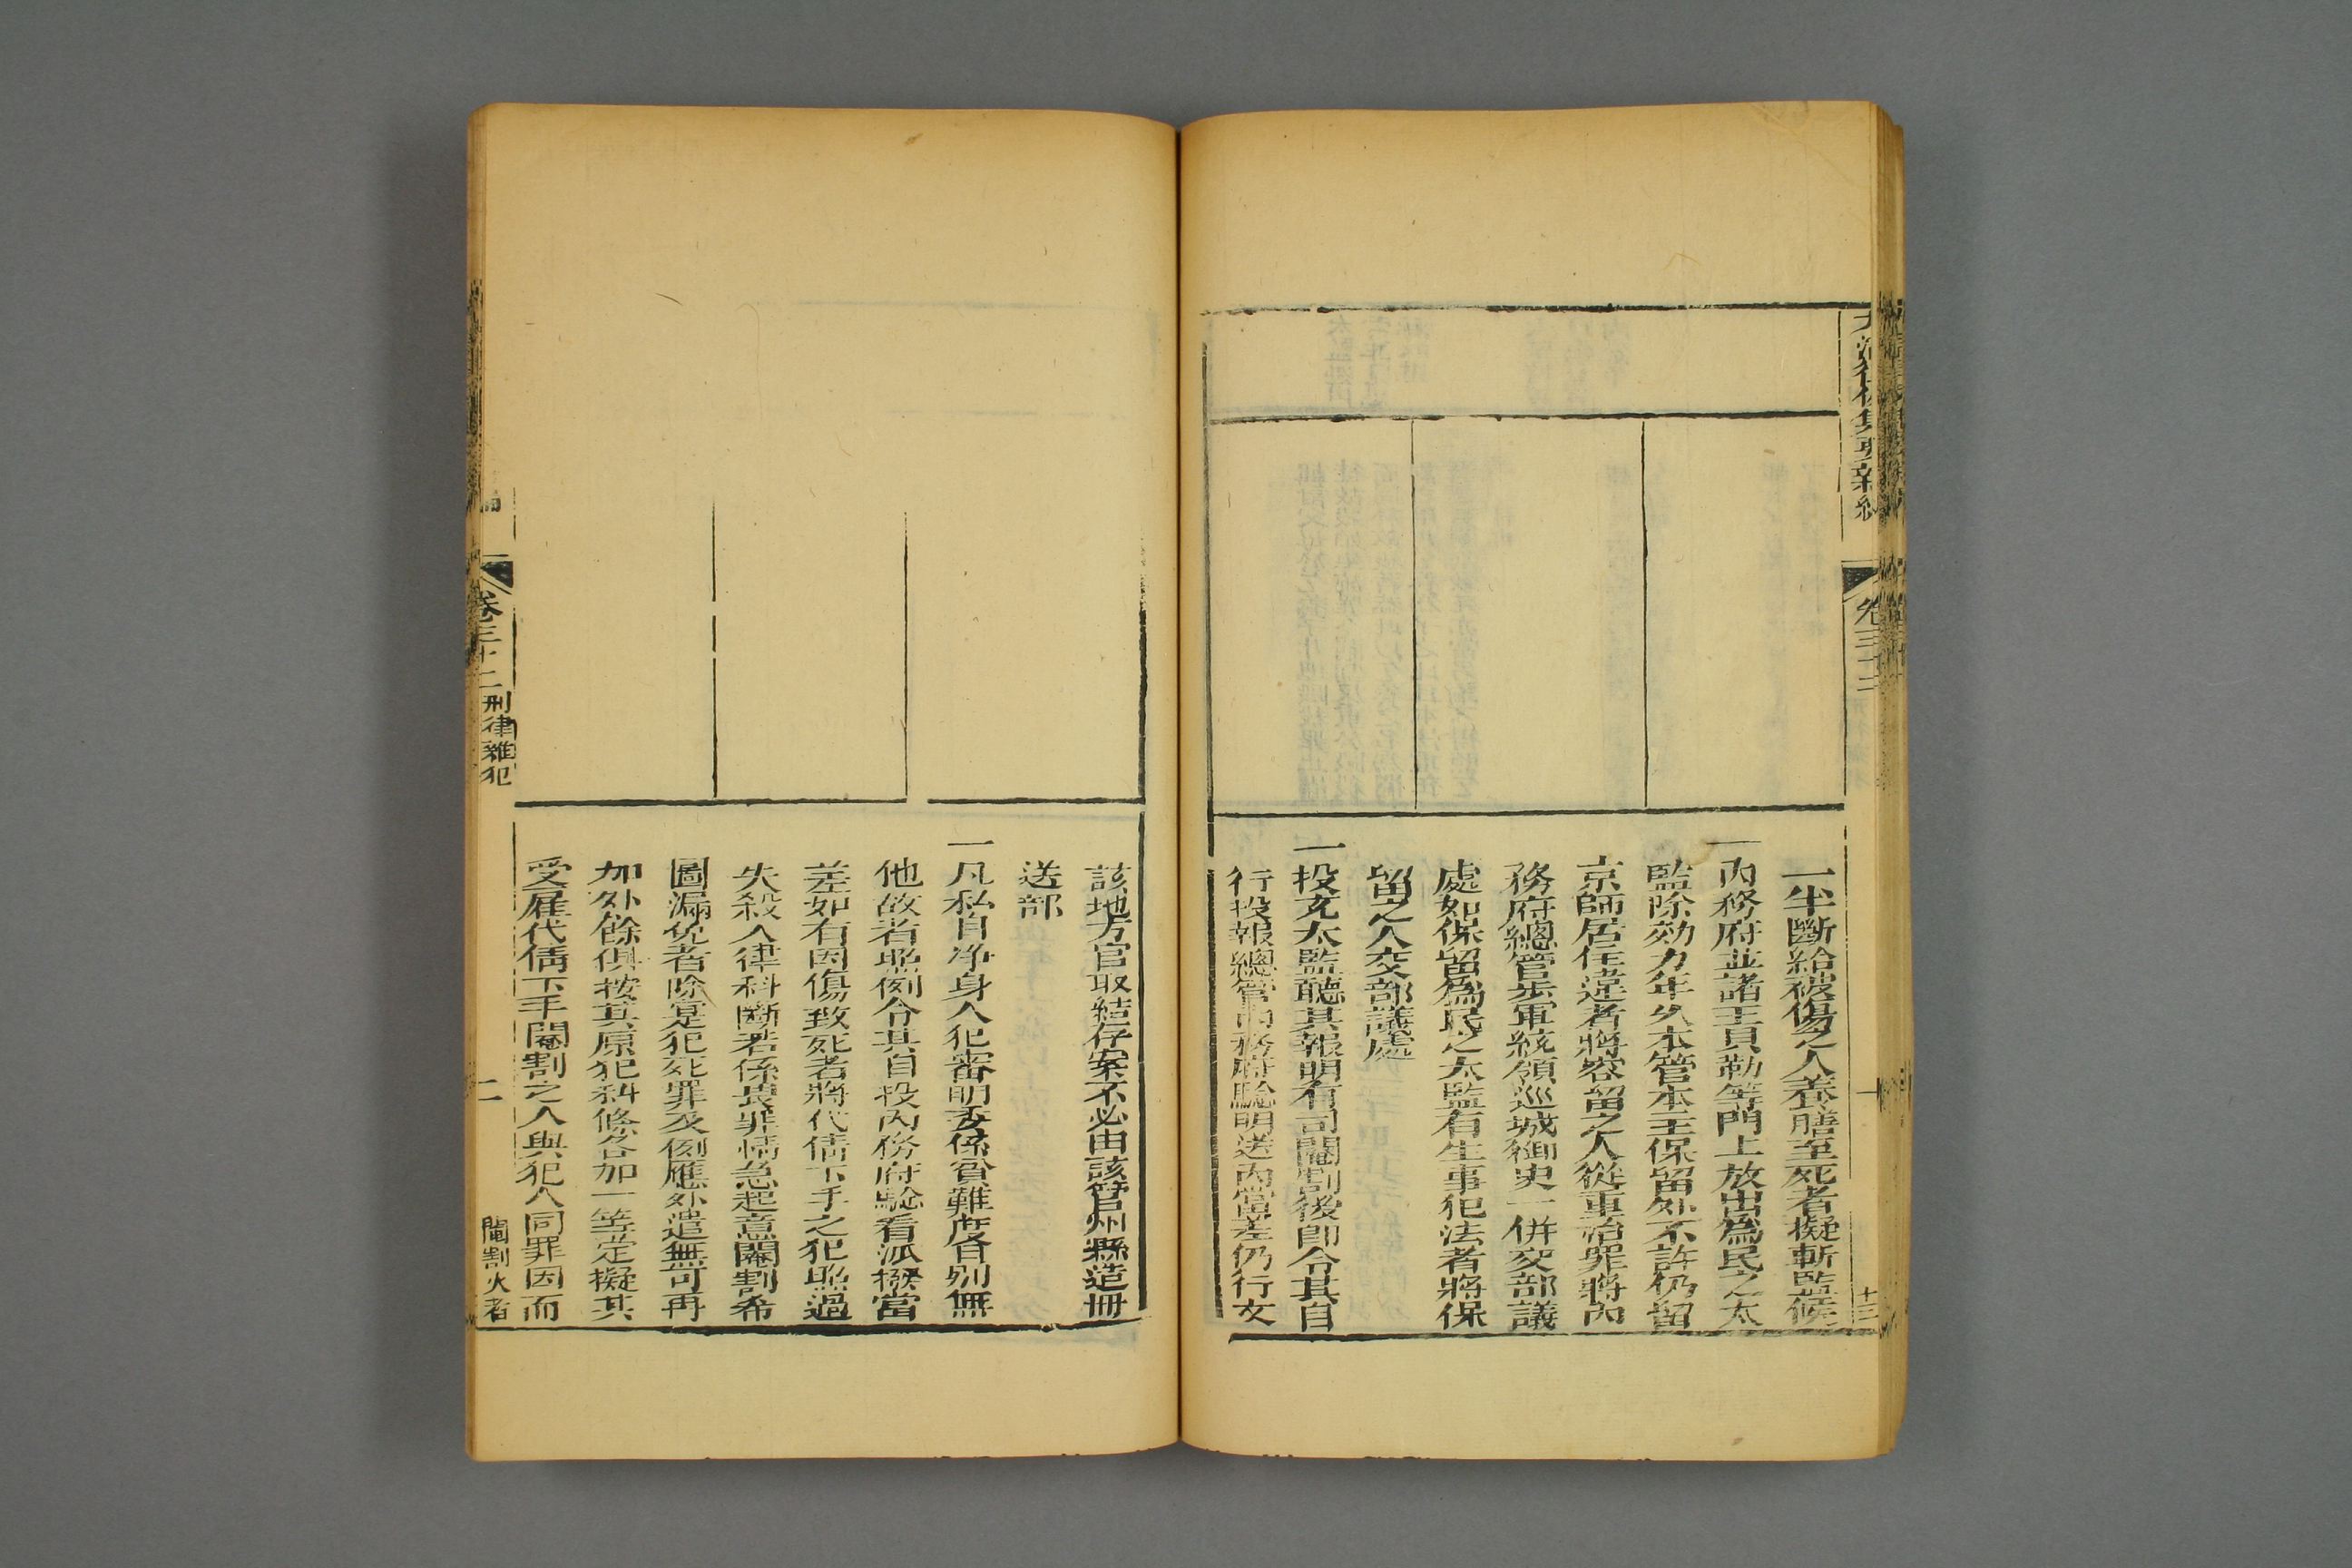 大清律例集要新編
卷三十二
十三
一半斷給被傷之人養膳至死者擬斬監候
一內務府並諸王貝勒等門上放出為民之太
監除効力年久本管本主保留外不許仍留
京師居住違者將容留之人從重治罪將內
務府總管步軍統領巡城御史一併交部議
處如保留為民之太監有生事犯法者將保
留之人交部議處
一投充太監聽其報明有司閹割後即令其自
行投報總管內務府驗明送內當差仍行文
該地方官取結存案不必由該管州縣造冊
送部
一凡私自净身人犯審明委係貧難度日別無
他故者照例令其自投內務府驗看派撥當
差如有因傷致死者將代倩下手之犯照過
失殺人律科斷若係畏罪情急起意閹割希
圖漏免者除寔犯死罪及例應外遣無可再
加外餘俱按其原犯科條各加一等定擬其
受雇代倩下手閹割之人與犯人同罪因而
編
卷三十二
刑律雜犯
閹割火者